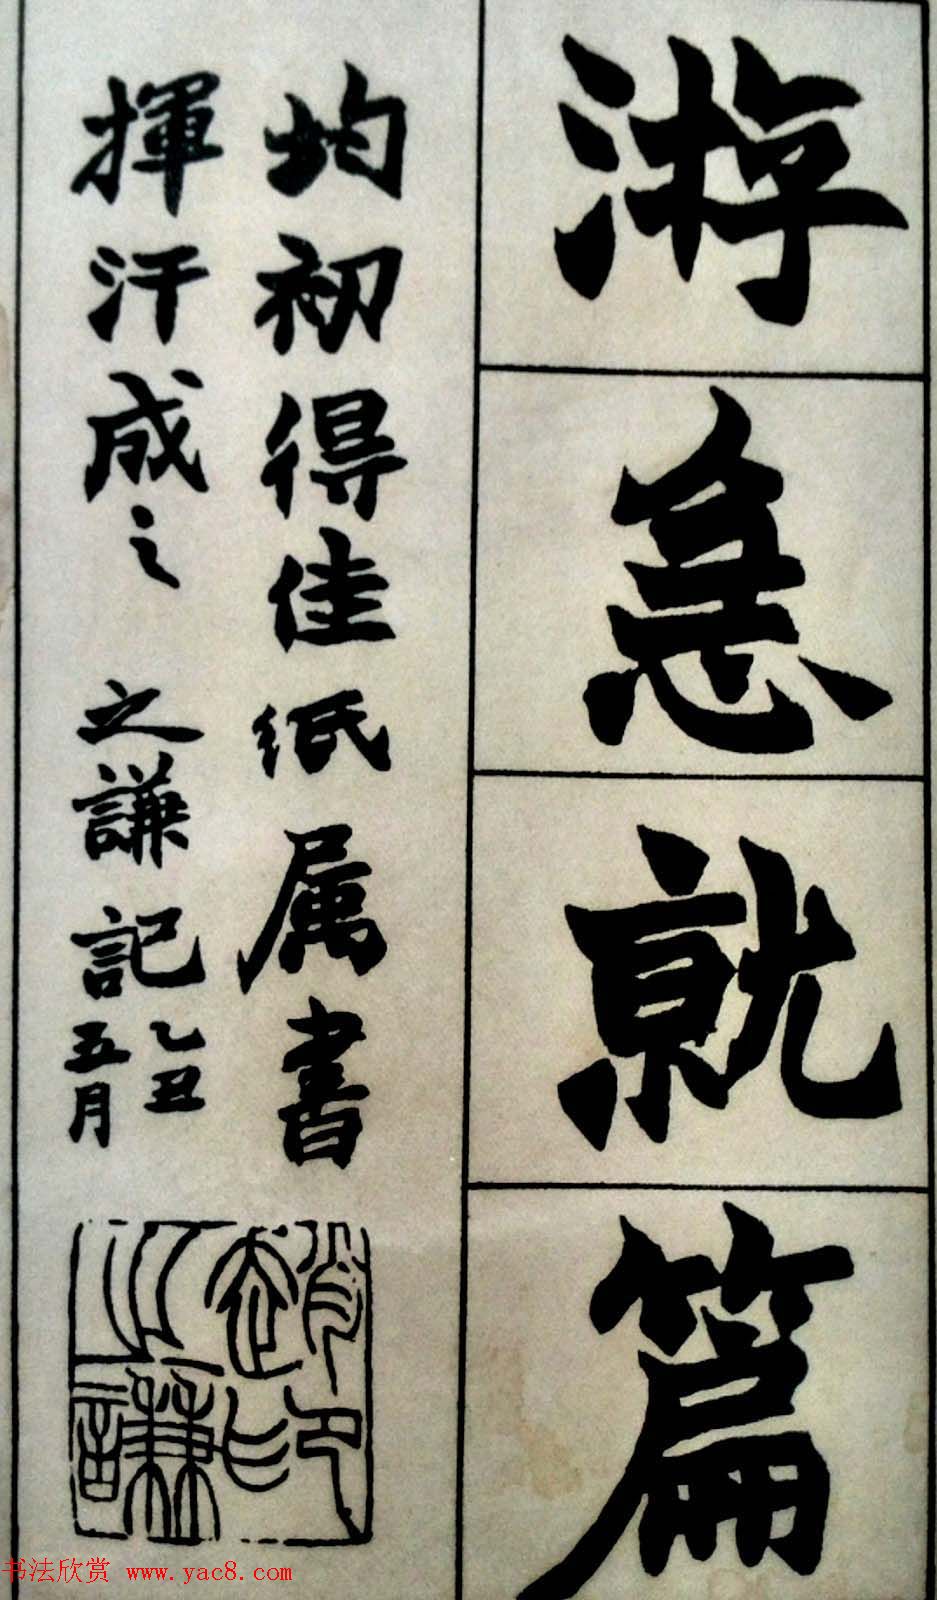 游急就篇
均初得佳纸属書
揮汗成之
之謙記乙丑
五月
趙之謙印
书法欣赏 www.yac8.com